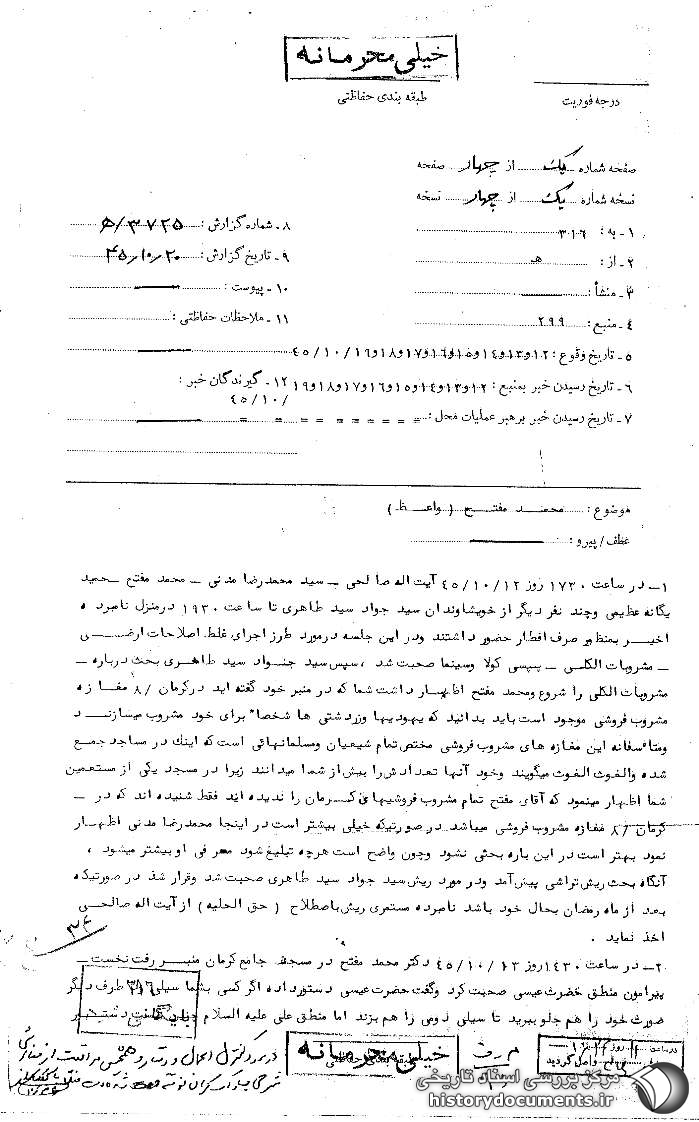 خیلی محرمانه
طبقه بندی حفاظتی
درجه فوریت
صفحه شماره یک از چهار صفحه
نسخه شماره یک از چهار نسخه
۱ـ به : ۳۱۶
۲ـ از : هـ
۳ـ منشأ :
۴ـ منبع : ۲۹۹
۸ـ شماره گزارش : ۳۷۲۵/هـ
۹ـ تاریخ گزارش : ۴۵/۱۰/۲۰
۱۰ـ پیوست :
۱۱ـ ملاحظات حفاظتی :
۵ـ تاریخ وقوع : ۱۲و۱۳و۱۴و۱۵و۱۶و۱۷و۱۸و۱۹/۱۰/۴۵
۶ـ تاریخ رسیدن خبر بمنبع : ۱۲و۱۳و۱۴و۱۵و۱۶و۱۷و۱۸و۱۹
/۱۰/۴۵
۱۲ـ گیرندگان خبر :
۷ـ تاریخ رسیدن خبر برهبر عملیات محل : = = = = = = = = =
موضوع : محمد مفتح (واعظ)
عطف/پیرو :
۱ـ در ساعت ۱۷۳۰ روز ۴۵/۱۰/۱۲ آیت اله صالحی ـ سید محمدرضا مدنی ـ محمد مفتح حمید
یگانه عظیمی وچند نفر دیگر از خویشاوندان سید جواد سید طاهری تا ساعت ۱۹۳۰ درمنزل نامبرده
اخیر بمنظور صرف افطار حضور داشتند ودر این جلسه درمورد طرز اجرای غلط اصلاحات ارضی
ـ مشروبات الکلی ـ پپسی کولا وسینما صحبت شد ، سپس سید جواد سید طاهری بحث درباره ـ
مشروبات الکلی را شروع ومحمد مفتح اظهار داشت شما که در منبر خود گفته اید درکرمان ۸۰/ مغازه
مشروب فروشی موجود است باید بدانید که یهودیها وزردشتی ها شخصا" برای خود مشروب میسازند
ومتأسفانه این مغازه های مشروب فروشی مختص تمام شیعیان ومسلمانهائی است که اینك در مساجد جمع
شده والغوث الغوث میگویند وخود آنها تعدادش را بیش از شما میدانند زیرا در مسجد یکی از مستعمین
شما اظهار مینمود که آقای مفتح تمام مشروب فروشیهای کرمان را ندیده اند فقط شنیده اند که در ـ
کرمان ۸۰/ مغازه مشروب فروشی میباشد در صورتیکه خیلی بیشتر است در اینجا محمدرضا مدنی اظهار
نمود بهتر است در این باره بحثی نشود وچون واضح است هرچه تبلیغ شود معرفی او بیشتر میشود ،
آنگاه بحث ریش تراشی پیش آمد ودر مورد ریش سید جواد سید طاهری صحبت شد وقرار شد در صورتیکه
بعد از ماه رمضان بحال خود باشد نامبرده مستمری ریش باصطلاح ( حق الحلیه ) از آیت اله صالحی
اخذ نماید .
۳۴
۲ـ در ساعت ۱۴۳۰ روز ۴۵/۱۰/۱۳ دکتر محمد مفتح در مسجد جامع کرمان منبر رفت نخست ـ
پیرامون منطق حضرت عیسی صحبت کرد وگفت حضرت عیسی دستور داده اگر کسی بشما سیلی زد طرف دیگر
صورت خود را هم جلو ببرید تا سیلی دومی را هم بزند اما منطق علی علیه السلام
۳۱۶
بایگانی
خیلی محرمانه
طبقه بندی حفاظتی
در ساعت
واصل گردید
در مورد کنترل اعمال و رفتار و همچنین مراقبت از
مرکز بررسی اسناد تاریخی
historydocuments.ir